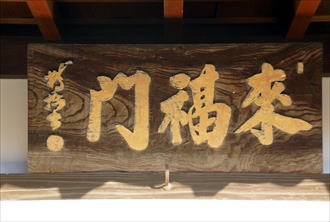 來福門